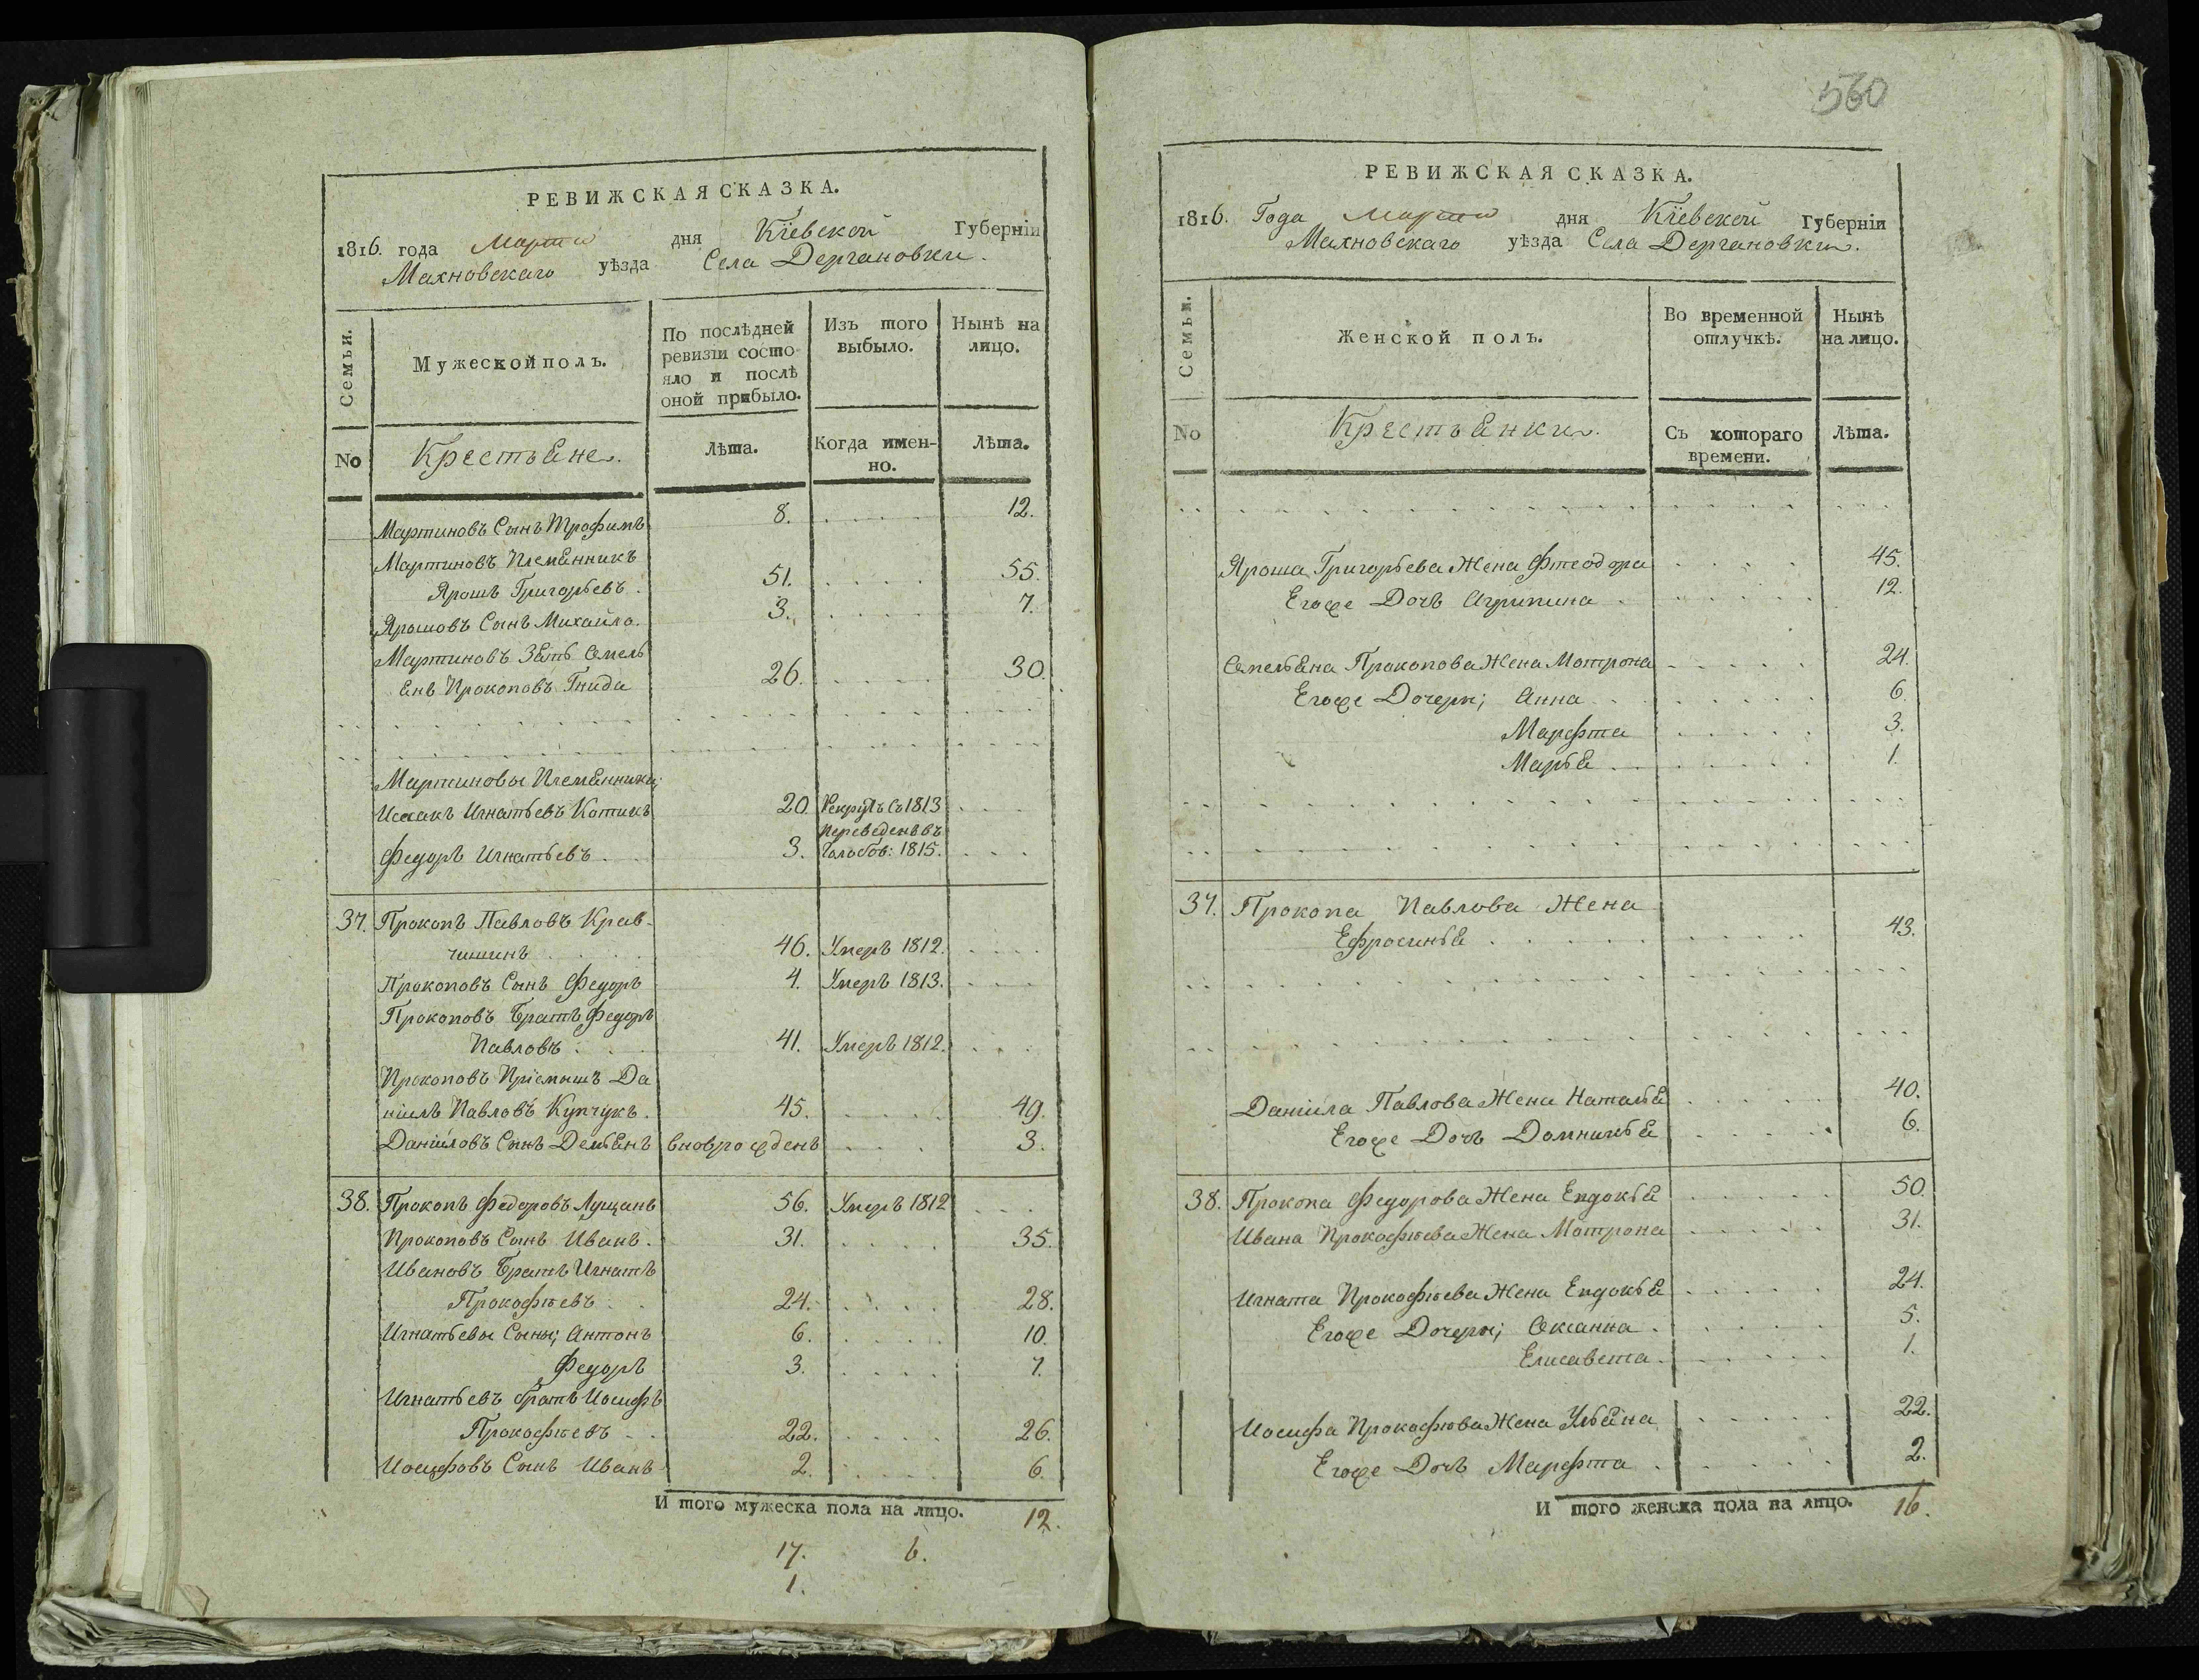 РЕВИЖСКАЯ СКАЗКА.
1816. года Марта дня Кіевской Губерніи
Махновскаго уѣзда Села Дергановки.
Семьи.
Мужеской полъ.
По послѣдней
ревизіи состо
яло и послѣ
оной прибыло.
Изъ того
выбыло.
Нынѣ на
лицо.
No
Крестьяне.
Лѣта.
Когда имен-
но.
Лѣта.
Мартиновъ Сынъ Трофимъ 8. 12.
Мартиновъ Племянникъ
Ярошъ Григорьевъ. 51. 55.
Ярошовъ Сынъ Михайло. 3. 7.
Мартиновъ Зять Омель
янъ Прокоповъ Гнида 26. 30.
Мартиновы Племянники;
Исаакъ Игнатьевъ Котикъ 20. Рекрутъ съ 1813
Переведенъ въ
Федоръ Игнатьевъ. 3. 1815.
37. Прокопъ Павловъ Крав-
чишинъ 46. Умеръ 1812.
Прокоповъ Сынъ Федоръ 4. Умеръ 1813.
Прокоповъ Братъ Федоръ
Павловъ 41. Умеръ 1812.
Прокоповъ Пріемышъ Да
ніилъ Павловъ Купчукъ. 45. 49.
Даніиловъ Сынъ Демьянъ вновърожденъ 3.
38. Прокопъ Федоровъ Лущанъ 56. Умеръ 1812
Прокоповъ Сынъ Иванъ. 31. 35.
Ивановъ Братъ Игнатъ
Прокофіевъ 24. 28.
Игнатьевы Сыны; Антонъ 6. 10.
Федоръ 3. 7.
Игнатьевъ братъ Иосифъ
Прокофіевъ 22. 26.
Иосифовъ Сынъ Иванъ 2. 6.
И того мужеска пола на лицо. 12.
17. 6.
1.
560
РЕВИЖСКАЯ СКАЗКА.
1816. Года Марта дня Кіевской Губерніи
Махновскаго уѣзда Села Дергановки.
Семьи.
Женской полъ.
Во временной
отлучкѣ.
Нынѣ
на лицо.
No
Крестьянки.
Съ котораго
времени.
Лѣта.
Яроша Григорьева Жена Фтеодора 45.
Егоже Дочь Агрипина 12.
Омельяна Прокопова Жена Мотрона 24.
Егоже Дочери; Анна 6.
Марфта 3.
Марья 1.
37. Прокопа Павлова Жена
Ефросинья 43.
Даніила Павлова Жена Наталья 40.
Егоже Дочь Домникья 6.
38. Прокопа Федорова Жена Евдокья 50.
Ивана Прокофіева Жена Мотрона 31.
Игната Прокофіева Жена Евдокья 24.
Егоже Дочери; Оксанна. 5.
Елисавета. 1.
Иосифа Прокофіева Жена Ульяна 22.
Егоже Дочь Марфта 2.
И того женска пола на лицо. 16.